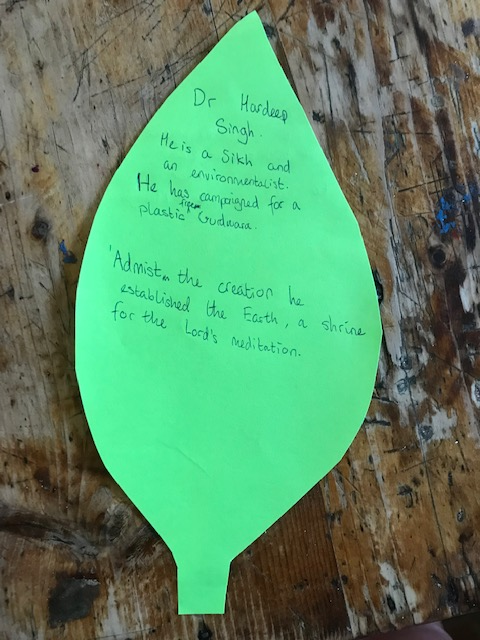 Dr Hardeep
Singh.
He is a Sikh and
an environmentalist.
He has campaigned for a
plastic free Gurdwara.
'Admist the creation he
established the Earth, a shrine
for the Lord's meditation.